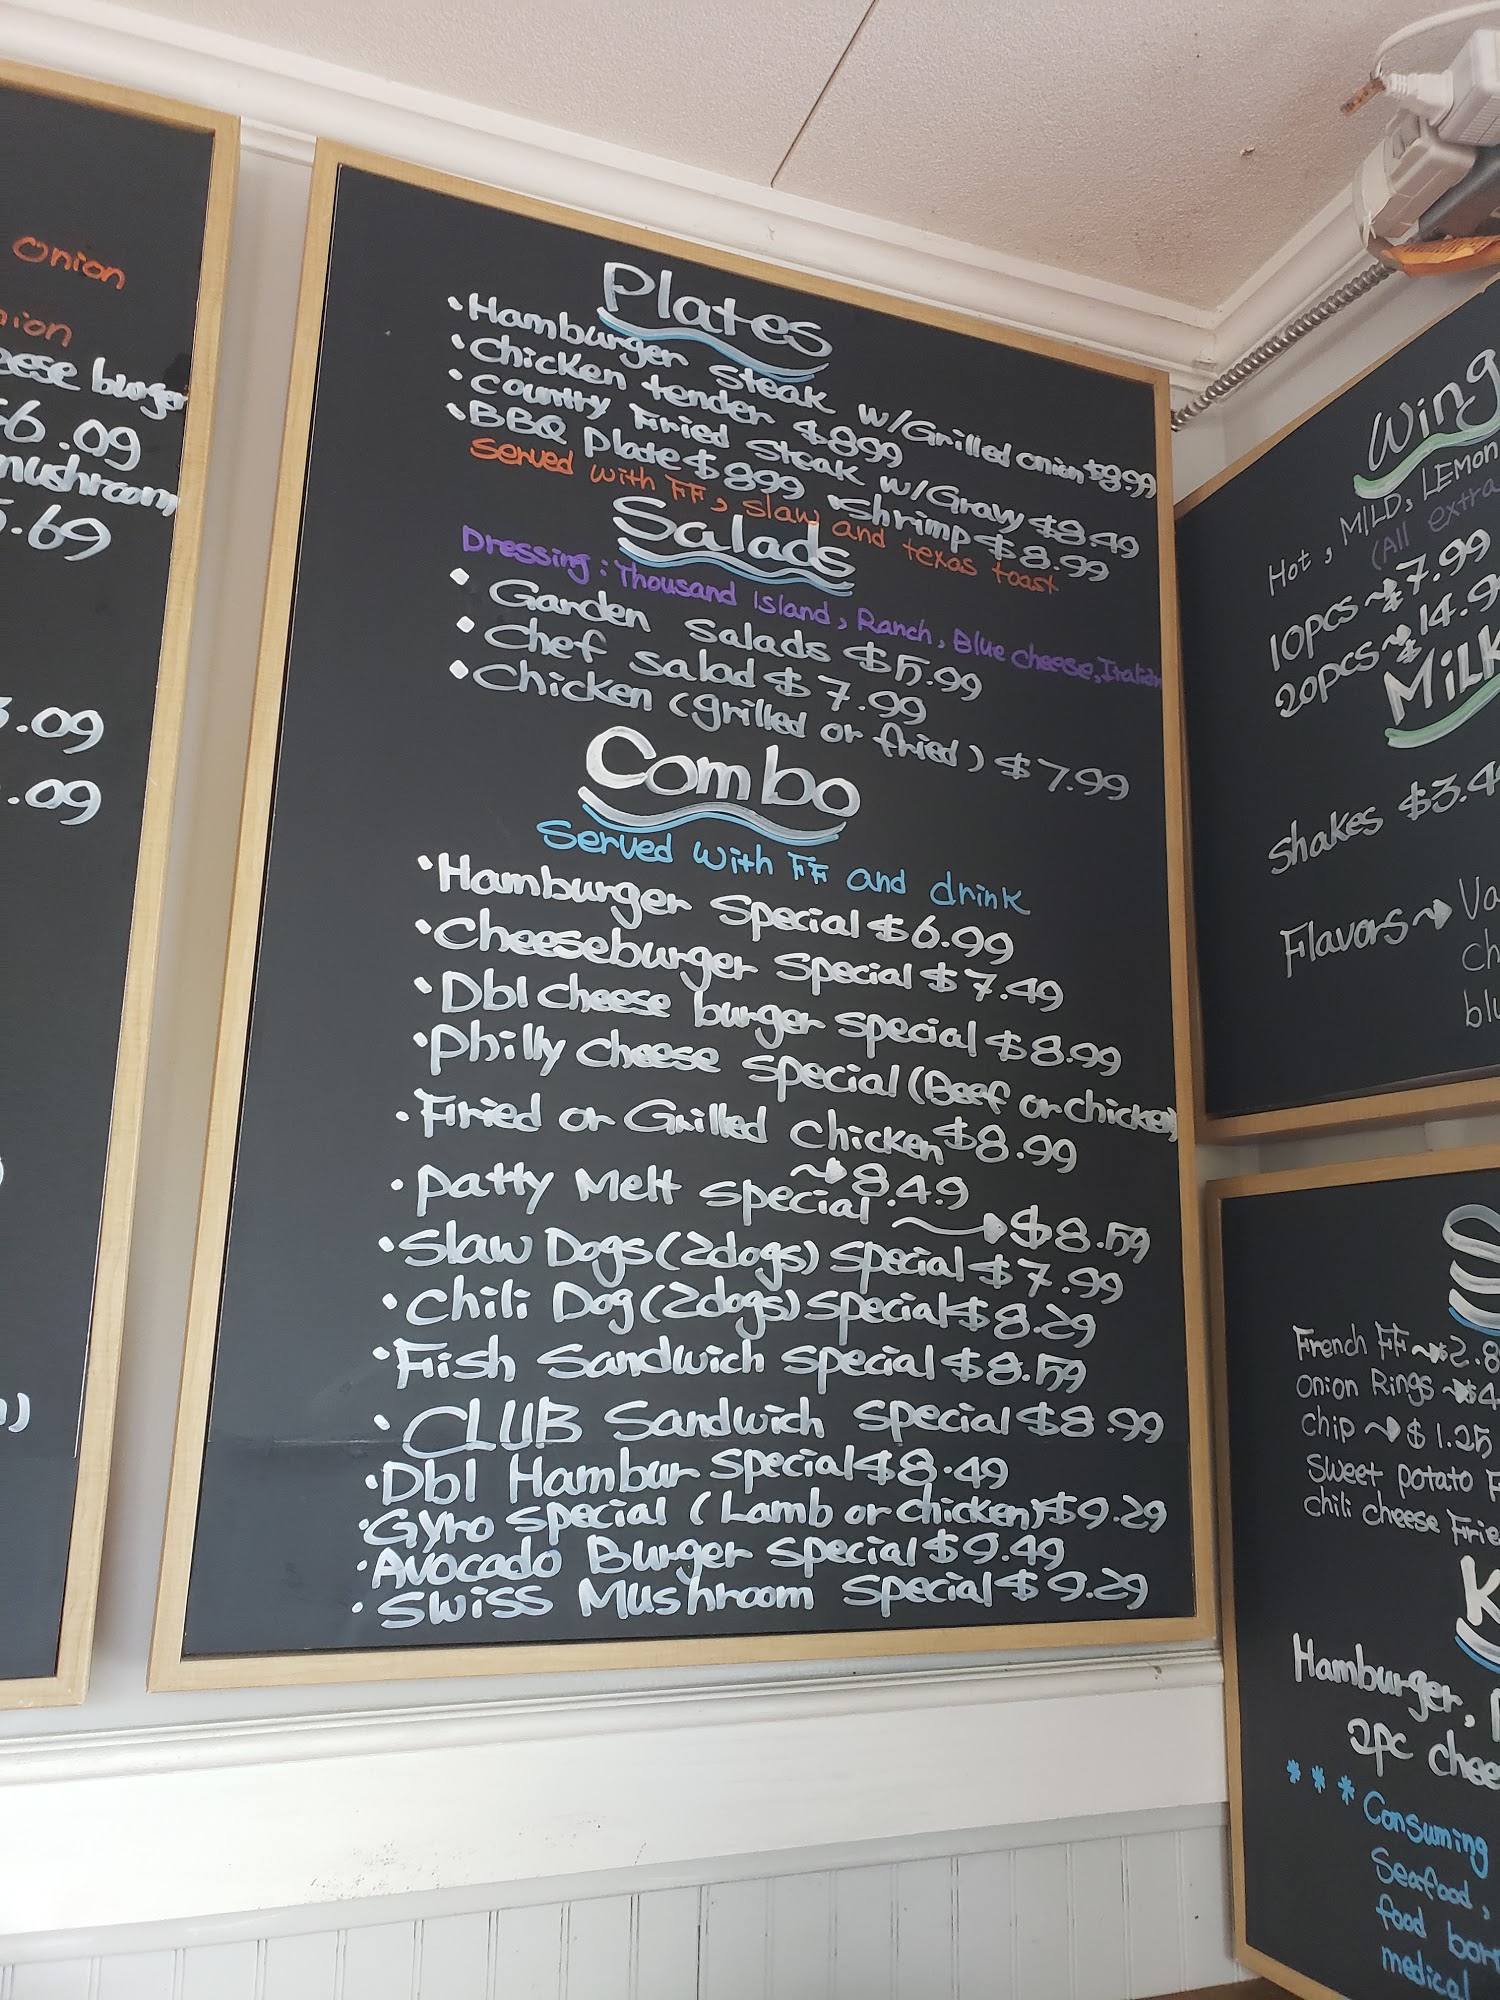 onion
nion
eese burger
$6.09
mushroom
5.69
3.09
.09
Plates
•Hamburger steak w/Grilled onion $8.99
•Chicken tender $899
•Country Fried Steak w/Gravy $8.49
•BBQ plate $899 •Shrimp $8.99
Served with FF, slaw and texas toast
Salads
Dressing: Thousand Island, Ranch, Blue cheese, Italian
•Garden Salads $5.99
•Chef salad $7.99
•Chicken (grilled or fried) $7.99
Combo
Served with FF and drink
•Hamburger Special $6.99
•Cheeseburger Special $7.49
•Dbl cheese burger special $8.99
•Philly cheese special (Beef or chicken)
$8.99
•Fried or Grilled chicken
→8.49
•Patty Melt special → $8.59
•Slaw Dogs (2dogs) special $7.99
•Chili Dog (2dogs) special $8.29
•Fish Sandwich special $8.59
•CLUB Sandwich special $8.99
•Dbl Hambur special $8.49
•Gyro special (Lamb or chicken) $9.29
•Avocado Burger special $9.49
•Swiss Mushroom special $9.29
Wing
Hot, MILD, LEMON
(All extra
10pcs → $7.99
20pcs → $14.9
Milk
Shakes $3.4
Flavors → Va
ch
blu
S
French FF → $2.8
Onion Rings → $4
Chip → $1.25
Sweet potato F
chili cheese Frie
K
Hamburger,
2pc chee
*** Consuming
Seafood,
food bor
medical